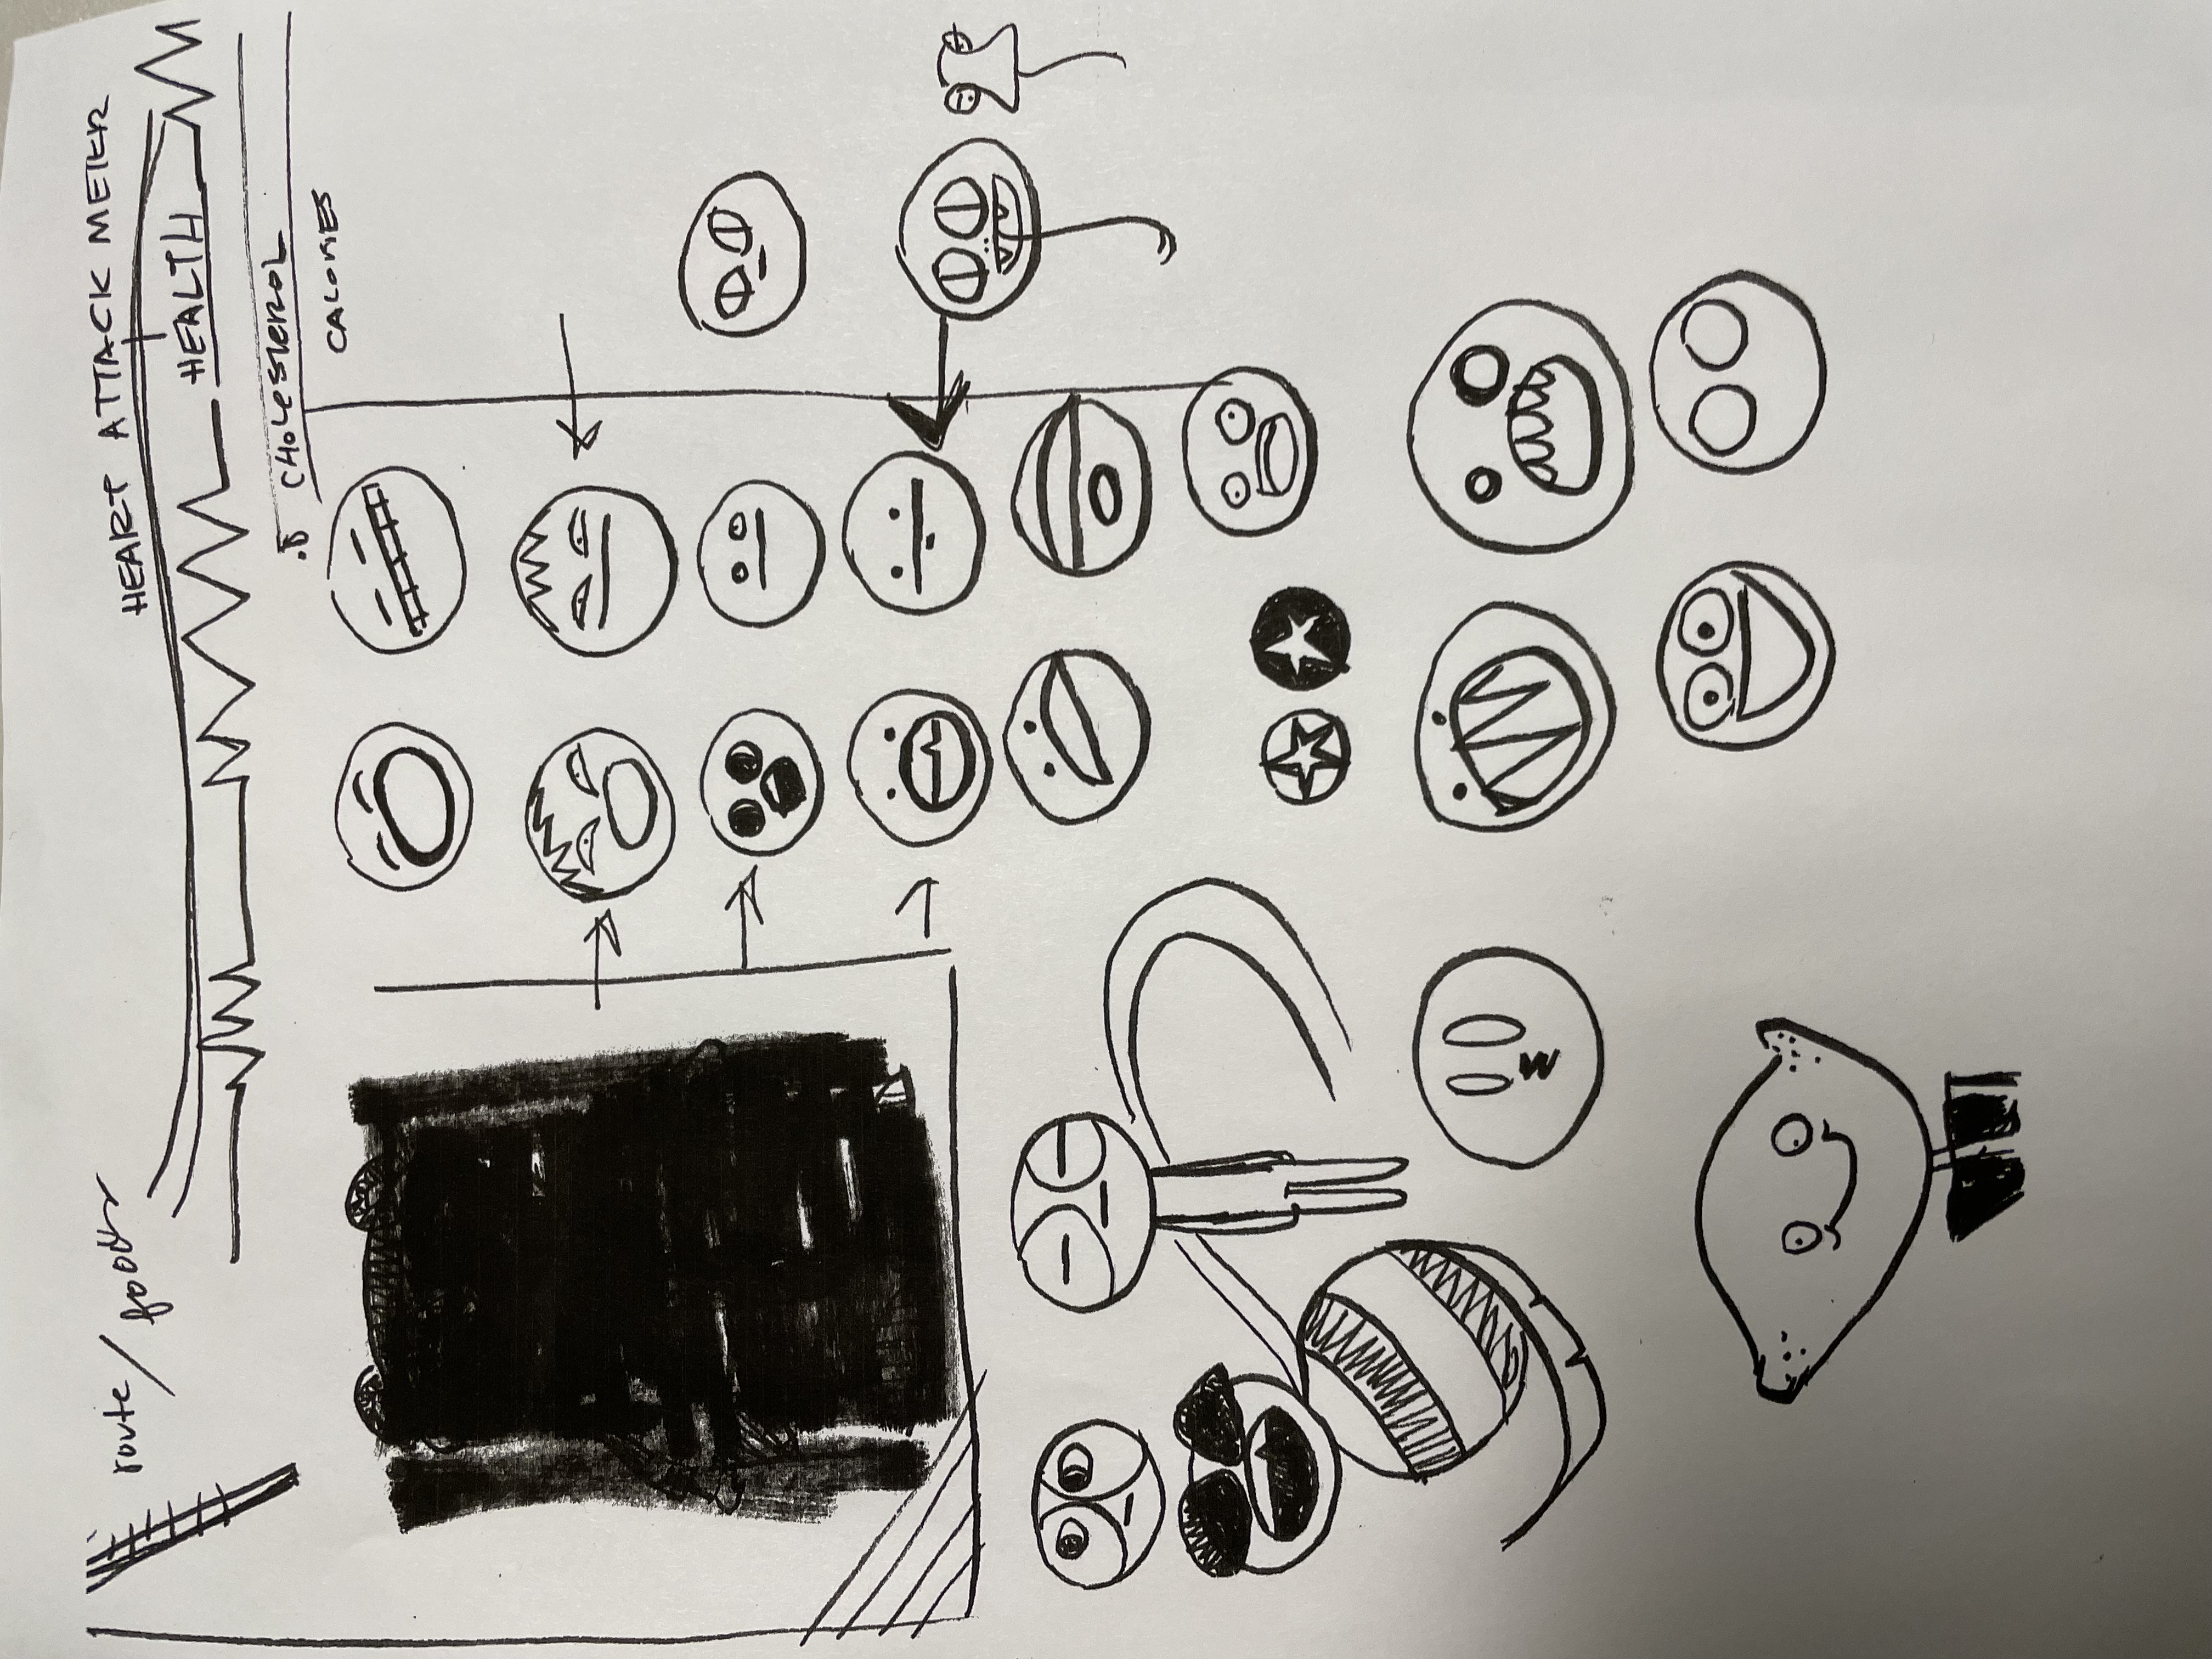 route / foods
HEART ATTACK METER
HEALTH
.5 CHOLESTEROL
CALORIES